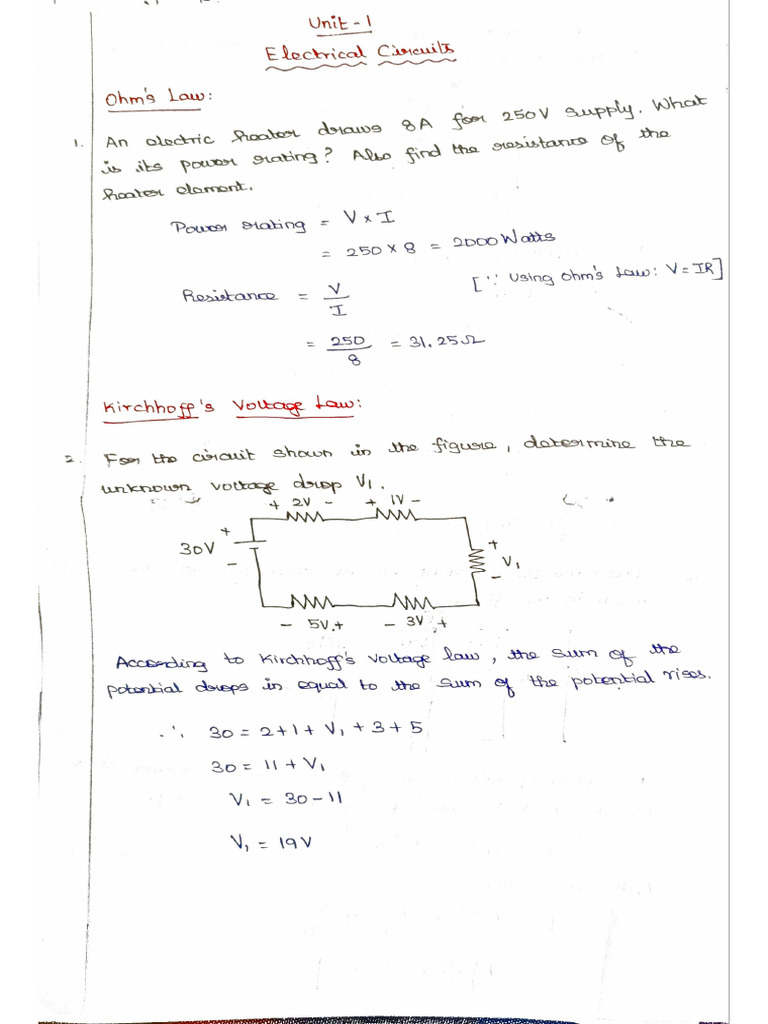 Unit-1
Electrical Circuits
Ohm's Law:
1. An electric heater draws 8A for 250V supply. What
is its power rating? Also find the resistance of the
heater element.
Power rating = V × I
= 250 × 8 = 2000 Watts
Resistance = V/I [∵ Using Ohm's Law: V = IR]
= 250/8 = 31.25Ω
Kirchhoff's Voltage Law:
2. For the circuit shown in the figure, determine the
unknown voltage drop V₁.
+ 2V - + 1V -
30V + - + V₁ -
- 5V + - 3V +
According to Kirchhoff's voltage law, the sum of the
potential drops is equal to the sum of the potential rises.
∴ 30 = 2+1+V₁+3+5
30 = 11+V₁
V₁ = 30-11
V₁ = 19V